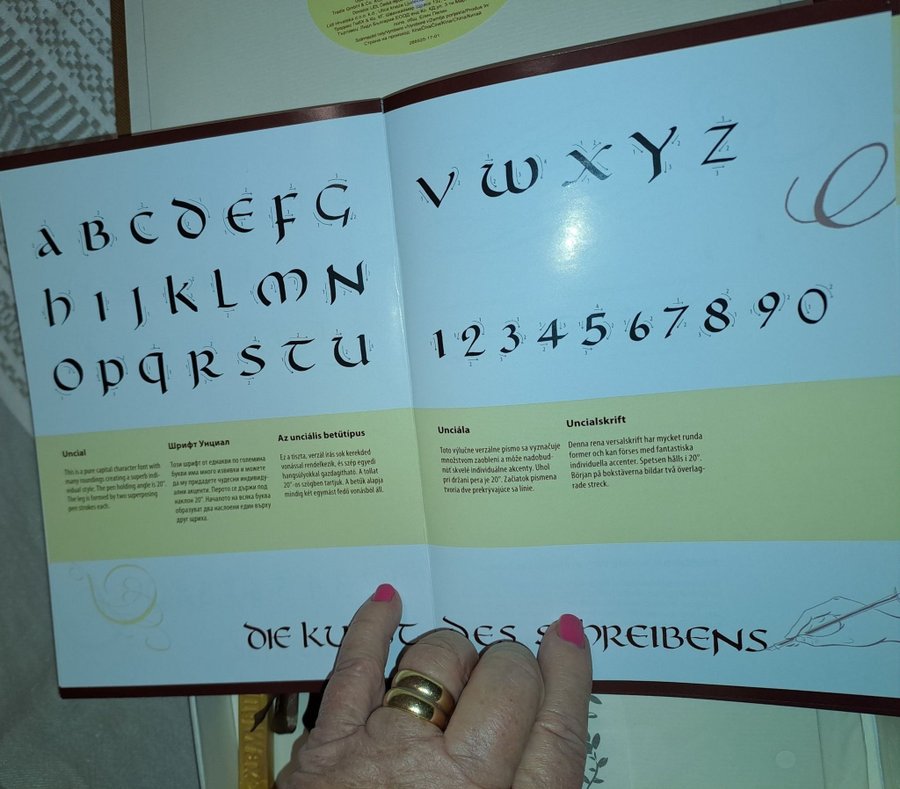 A B C D E F G
H I J K L M N
O P Q R S T U
V W X Y Z
1 2 3 4 5 6 7 8 9 0
Uncial
This is a pure capital character font with
many roundings creating a superb indi-
vidual style. The pen holding angle is 20°.
The leg is formed by two superposing
pen strokes each.
Шрифт Унциал
Този шрифт от еднакви по големина
букви има много извивки и можете
да му придадете чудесни индивиду-
ални акценти. Перото се държи под
наклон 20°. Началото на всяка буква
образуват два наслоени един върху
друг щриха.
Az unciális betűtípus
Ez a tiszta, verzál írás sok kerekded
vonással rendelkezik, és szép egyedi
hangsúlyokkal gazdagítható. A tollat
20°-os szögben tartjuk. A betűk alapja
mindig két egymást fedő vonásból áll.
Unciála
Toto výlučne verzálne písmo sa vyznačuje
množstvom zaoblení a môže nadobud-
núť skvelé individuálne akcenty. Uhol
pri držaní pera je 20°. Začiatok písmena
tvoria dve prekrývajúce sa línie.
Uncialskrift
Denna rena versalskrift har mycket runda
former och kan förses med fantastiska
individuella accenter. Spetsen hålls i 20°.
Början på bokstäverna bildar två överlag-
rade streck.
DIE DES SCHREIBENS